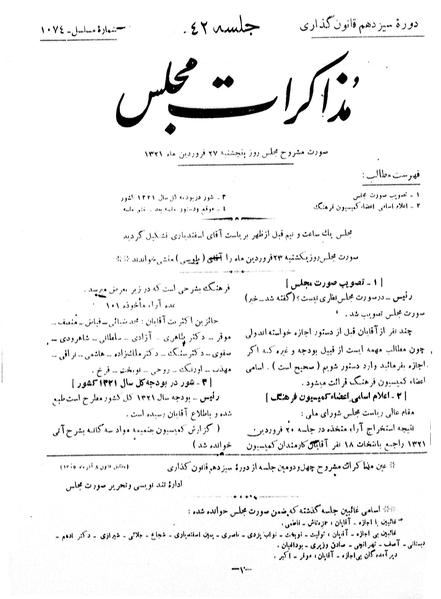 دورهٔ سیزدهم قانون گذاری
جلسه ۴۲
شمارهٔ مسلسل - ۱۰۷۴
مذاکرات مجلس
صورت مشروح مجلس روز پنجشنبه ۲۷ فروردین ماه ۱۳۲۱
فهرست مطالب:
۱ - تصویب صورت مجلس
۲ - اعلام اسامی اعضاء کمیسیون فرهنگ
۳ - شور در بودجه کل سال ۱۳۲۱ کشور
۴ - موقع و دستور جلسه بعد - ختم جلسه
مجلس یك ساعت و نیم قبل از ظهر بریاست آقای اسفندیاری تشکیل گردید
صورت مجلس روز یکشنبه ۲۳ فروردین ماه را آقای (طوسی) منشی خواندند
[ ۱ - تصویب صورت مجلس ]
رئیس - در صورت مجلس نظری نیست؟ (گفته شد - خیر)
صورت مجلس تصویب شد.
چند نفر از آقایان قبل از دستور اجازه خواسته اند ولی
چون مطالب مهمه است از قبیل بودجه و غیره که اگر
اجازه بفرمائید وارد دستور شویم (صحیح است). اسامی
اعضاء کمیسیون فرهنگ قرائت میشود.
[ ۲ - اعلام اسامی اعضاء کمیسیون فرهنگ ]
مقام عالی ریاست مجلس شورای ملی:
نتیجه استخراج آراء متخذه در جلسه ۲۰ فروردین
۱۳۲۱ راجع بانتخاب ۱۸ نفر آقایان کارمندان کمیسیون
فرهنگ بشرحی است که در زیر بعرض میرسد.
عده آراء مأخوذه ۱۰۱
حائزین اکثریت آقایان: محمد ضیائی - فیاض - منصف -
موقر - دکتر طاهری - آزادی - سلطانی - شاهرودی -
صفوی - دکتر سنگ - دکتر ملك زاده - هاشمی - نراقی -
مهذب - اورنگ - روحی - نوبخت - فرخ.
[ ۳ - شور در بودجه کل سال ۱۳۲۱ کشور ]
رئیس - بودجه سال ۱۳۲۱ کل کشور مطرح است طبع
شده و باطلاع آقایان رسیده است.
(گزارش کمیسیون بضمیمه مواد سه گانه بشرح آتی
خوانده شد)
عین مذاکرات مشروح چهل و دومین جلسه از دورهٔ سیزدهم قانون گذاری
ادارهٔ تند نویسی و تحریر صورت مجلس
اسامی غائبین جلسه گذشته که ضمن صورت مجلس خوانده شده:
غائبین با اجازه - آقایان:
غائبین بی اجازه - آقایان: تولیت - نوبخت - نواب یزدی - ناصری - شجاع - جلائی - شیرازی - دکتر ادهم -
دبستانی - آصف - تهرانچی - صادق وزیری - بوداغیان.
دیر آمدگان بی اجازه - آقایان: موقر - اکبر.
-۱-